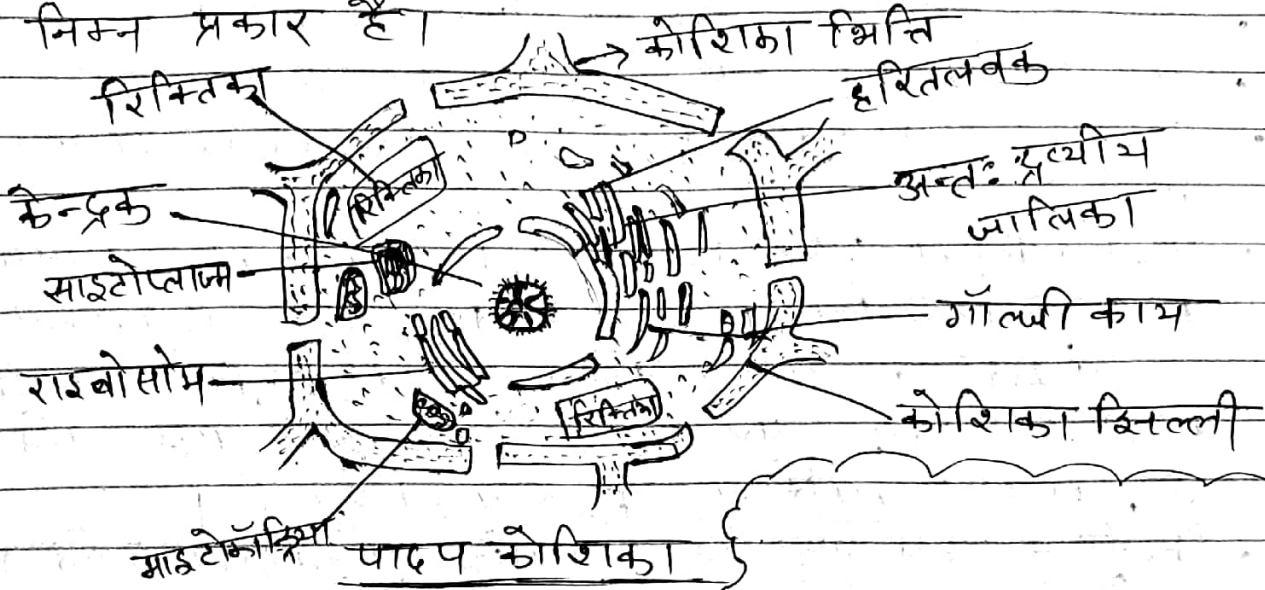 निम्न प्रकार है।
कोशिका भित्ति
रिक्तिका
हरितलवक
रिक्तिका
अन्तः द्रव्यीय
जालिका
केन्द्रक
साइटोप्लाज्म
गॉल्जी काय
राइबोसोम
रिक्तिका
कोशिका झिल्ली
माइटोकॉन्ड्रिया
पादप कोशिका